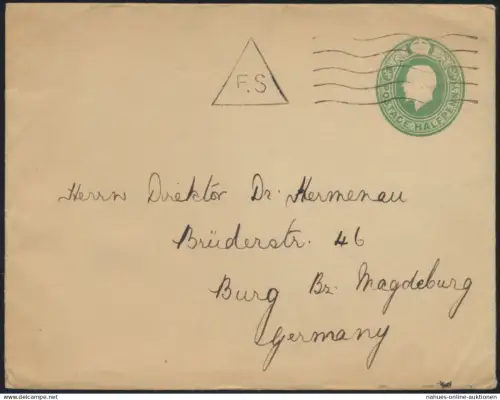 F.S
POSTAGE. HALFPENNY
Herrn Direktor Dr. Hermenau
Brüderstr. 46
Burg Bz. Magdeburg
Germany
nahues-online-auktionen